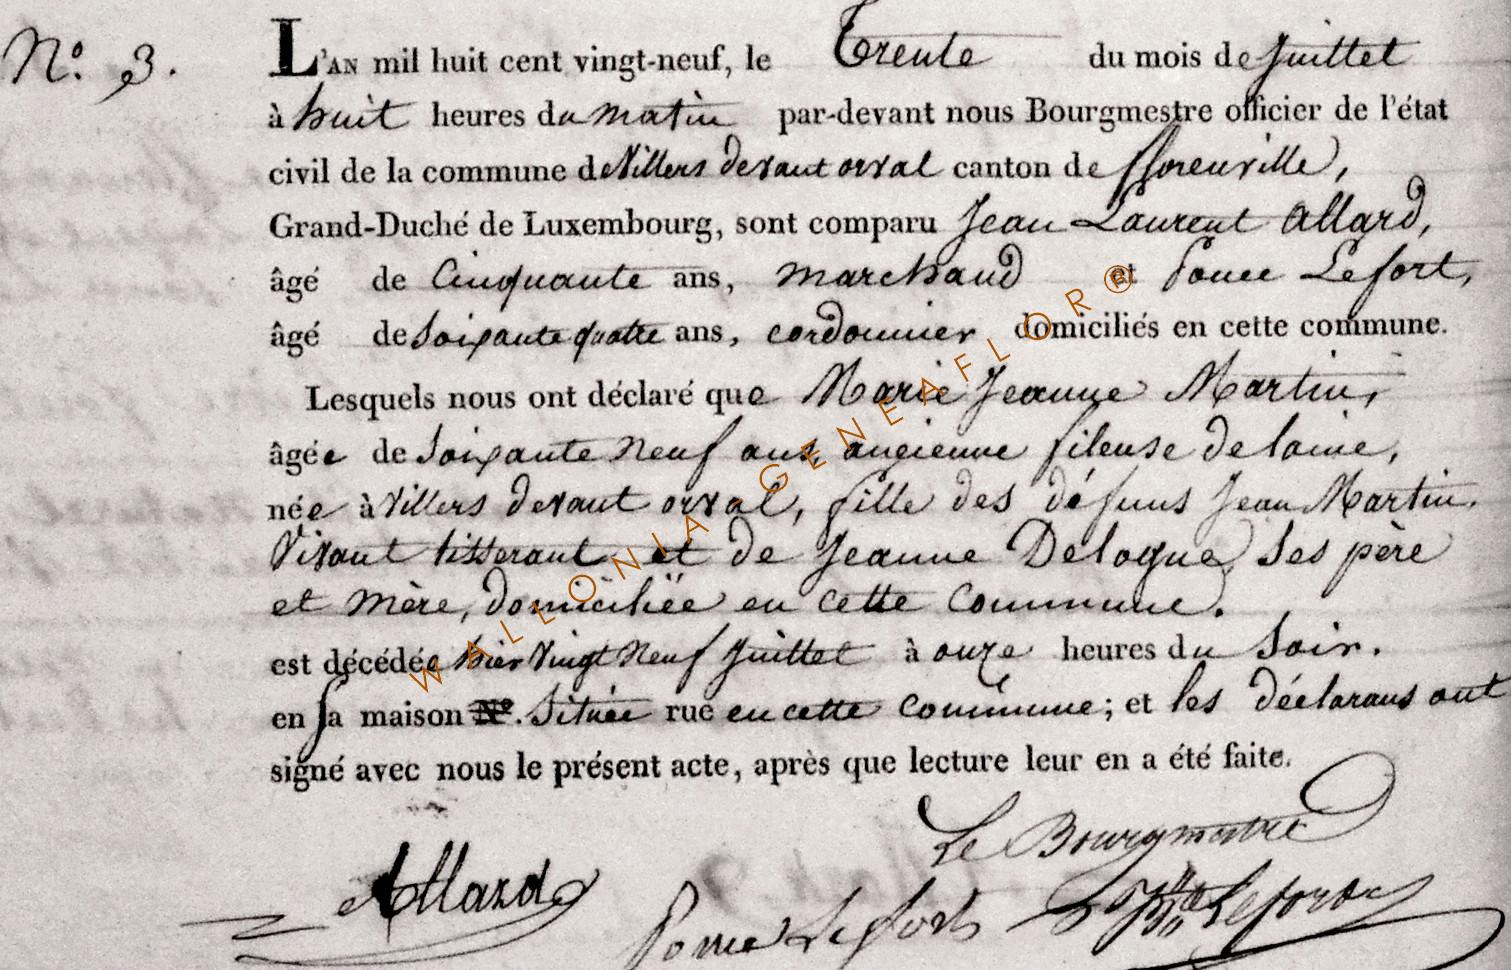 N.o 3.
L'AN mil huit cent vingt-neuf, le Trente du mois de Juillet
à huit heures du matin par-devant nous Bourgmestre officier de l'état
civil de la commune de Villers devant orval canton de fflorenville,
Grand-Duché de Luxembourg, sont comparu Jean Laurent Allard,
âgé de Cinquante ans, marchand et Ponce Lefort,
âgé de Soixante quatre ans, cordonnier domiciliés en cette commune.
Lesquels nous ont déclaré que Marie Jeanne Martin,
âgée de Soixante Neuf ans, ancienne fileuse de laine,
née à Villers devant orval, fille des défuns Jean Martin.
Vivant tisserant et de Jeanne Delogne, Ses père
et mère, domiciliëe en cette Commune.
est décédée hier Vingt Neuf Juillet à onze heures du Soir.
en Sa maison N.o Située rue en cette Commune; et les déclarans ont
signé avec nous le présent acte, après que lecture leur en a été faite.
Le Bourgmestre
Allard
Ponce Lefort Lefort
WALLONIA - GENEAFLOR®